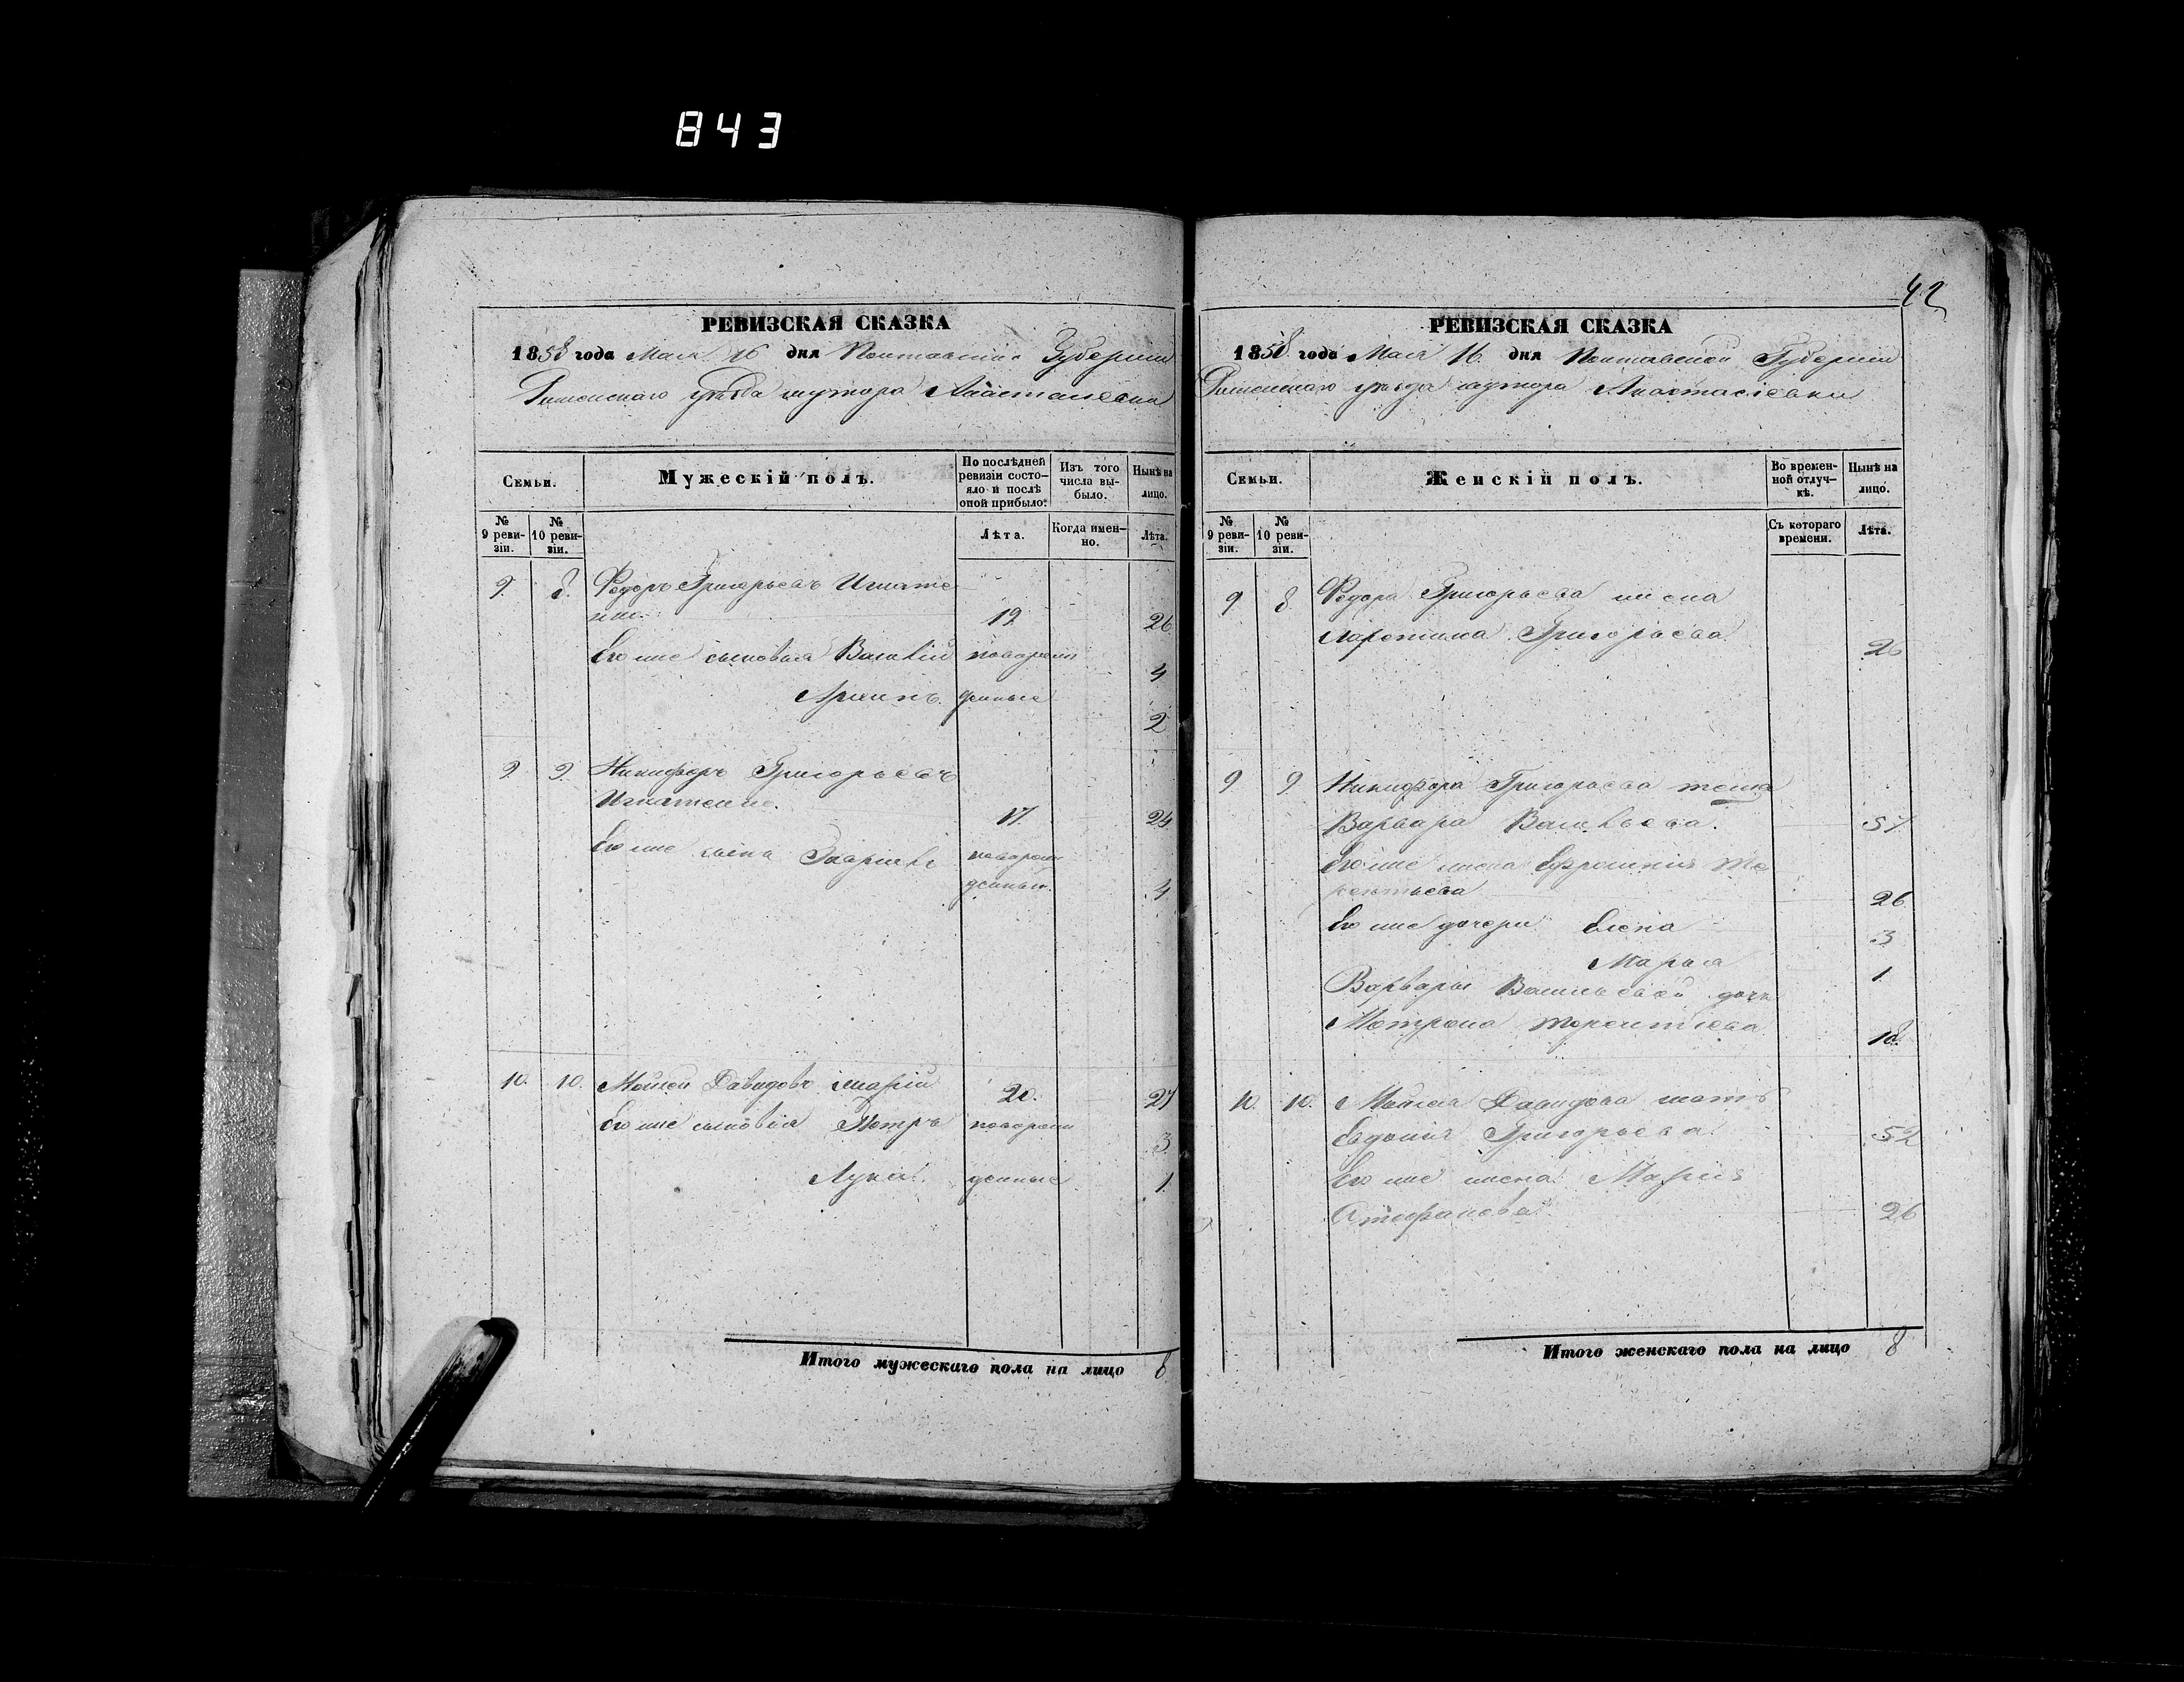 843
РЕВИЗСКАЯ СКАЗКА
1858 года Мая 16 дня Полтавской Губернии
Роменскаго уѣзда хутора Анастасіевки
Семьи.
Мужескій полъ.
По послѣдней ревизіи состояло и послѣ оной прибыло.
Изъ того числа выбыло.
Нынѣ на лицо.
№ 9 ревизіи.
№ 10 ревизіи.
Лѣта.
Когда именно.
Лѣта.
9. 8. Федоръ Григорьевъ Игнате
нко. 19 26
Его же сыновья Василій новорож 4
денные 2
9 9. Никифоръ Григорьевъ
Игнатенко. 17. 24
Его же сынъ новорож
денный. 4
10. 10. Мойсей Давидовъ 20. 27
Его же сыновья Петръ новорож 3
Лука денные 1
Итого мужескаго пола на лицо 8
42
РЕВИЗСКАЯ СКАЗКА
1858 года Мая 16. дня Полтавской Губернии
Роменскаго уѣзда хутора Анастасіевки
Семьи.
Женскій полъ.
Во временной отлучкѣ.
Нынѣ на лицо.
№ 9 ревизіи.
№ 10 ревизіи.
Съ котораго времени.
Лѣта.
9 8 Федора Григорьева жена
Григорьева. 26
9 9 Никифора Григорьева теща
Варвара Васильева. 57
Его же жена Ефросинія Те
рентьева 26
Его же дочери Елена 3
Марья 1
Варвары Васильевой дочь
Мотрона Терентіева 18.
10. 10. Мойсея Давидова мать
Евдокія Григорьева. 52
Его же жена Марія
Стефанова 26
Итого женскаго пола на лицо 8